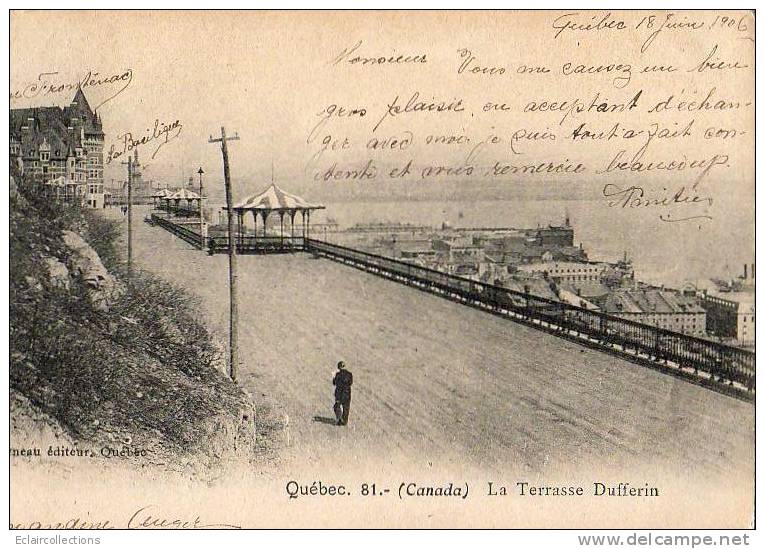 Québec 18 Juin 1906
Monsieur Vous me causez un bien
gros plaisir, en acceptant d'échan-
ger avec moi, je suis tout à fait con-
tente et vous remercie beaucoup.
Frontenac
La Basilique
neau éditeur, Québec
Québec. 81.- (Canada) La Terrasse Dufferin
andine Auger
Eclaircollections
www.delcampe.net